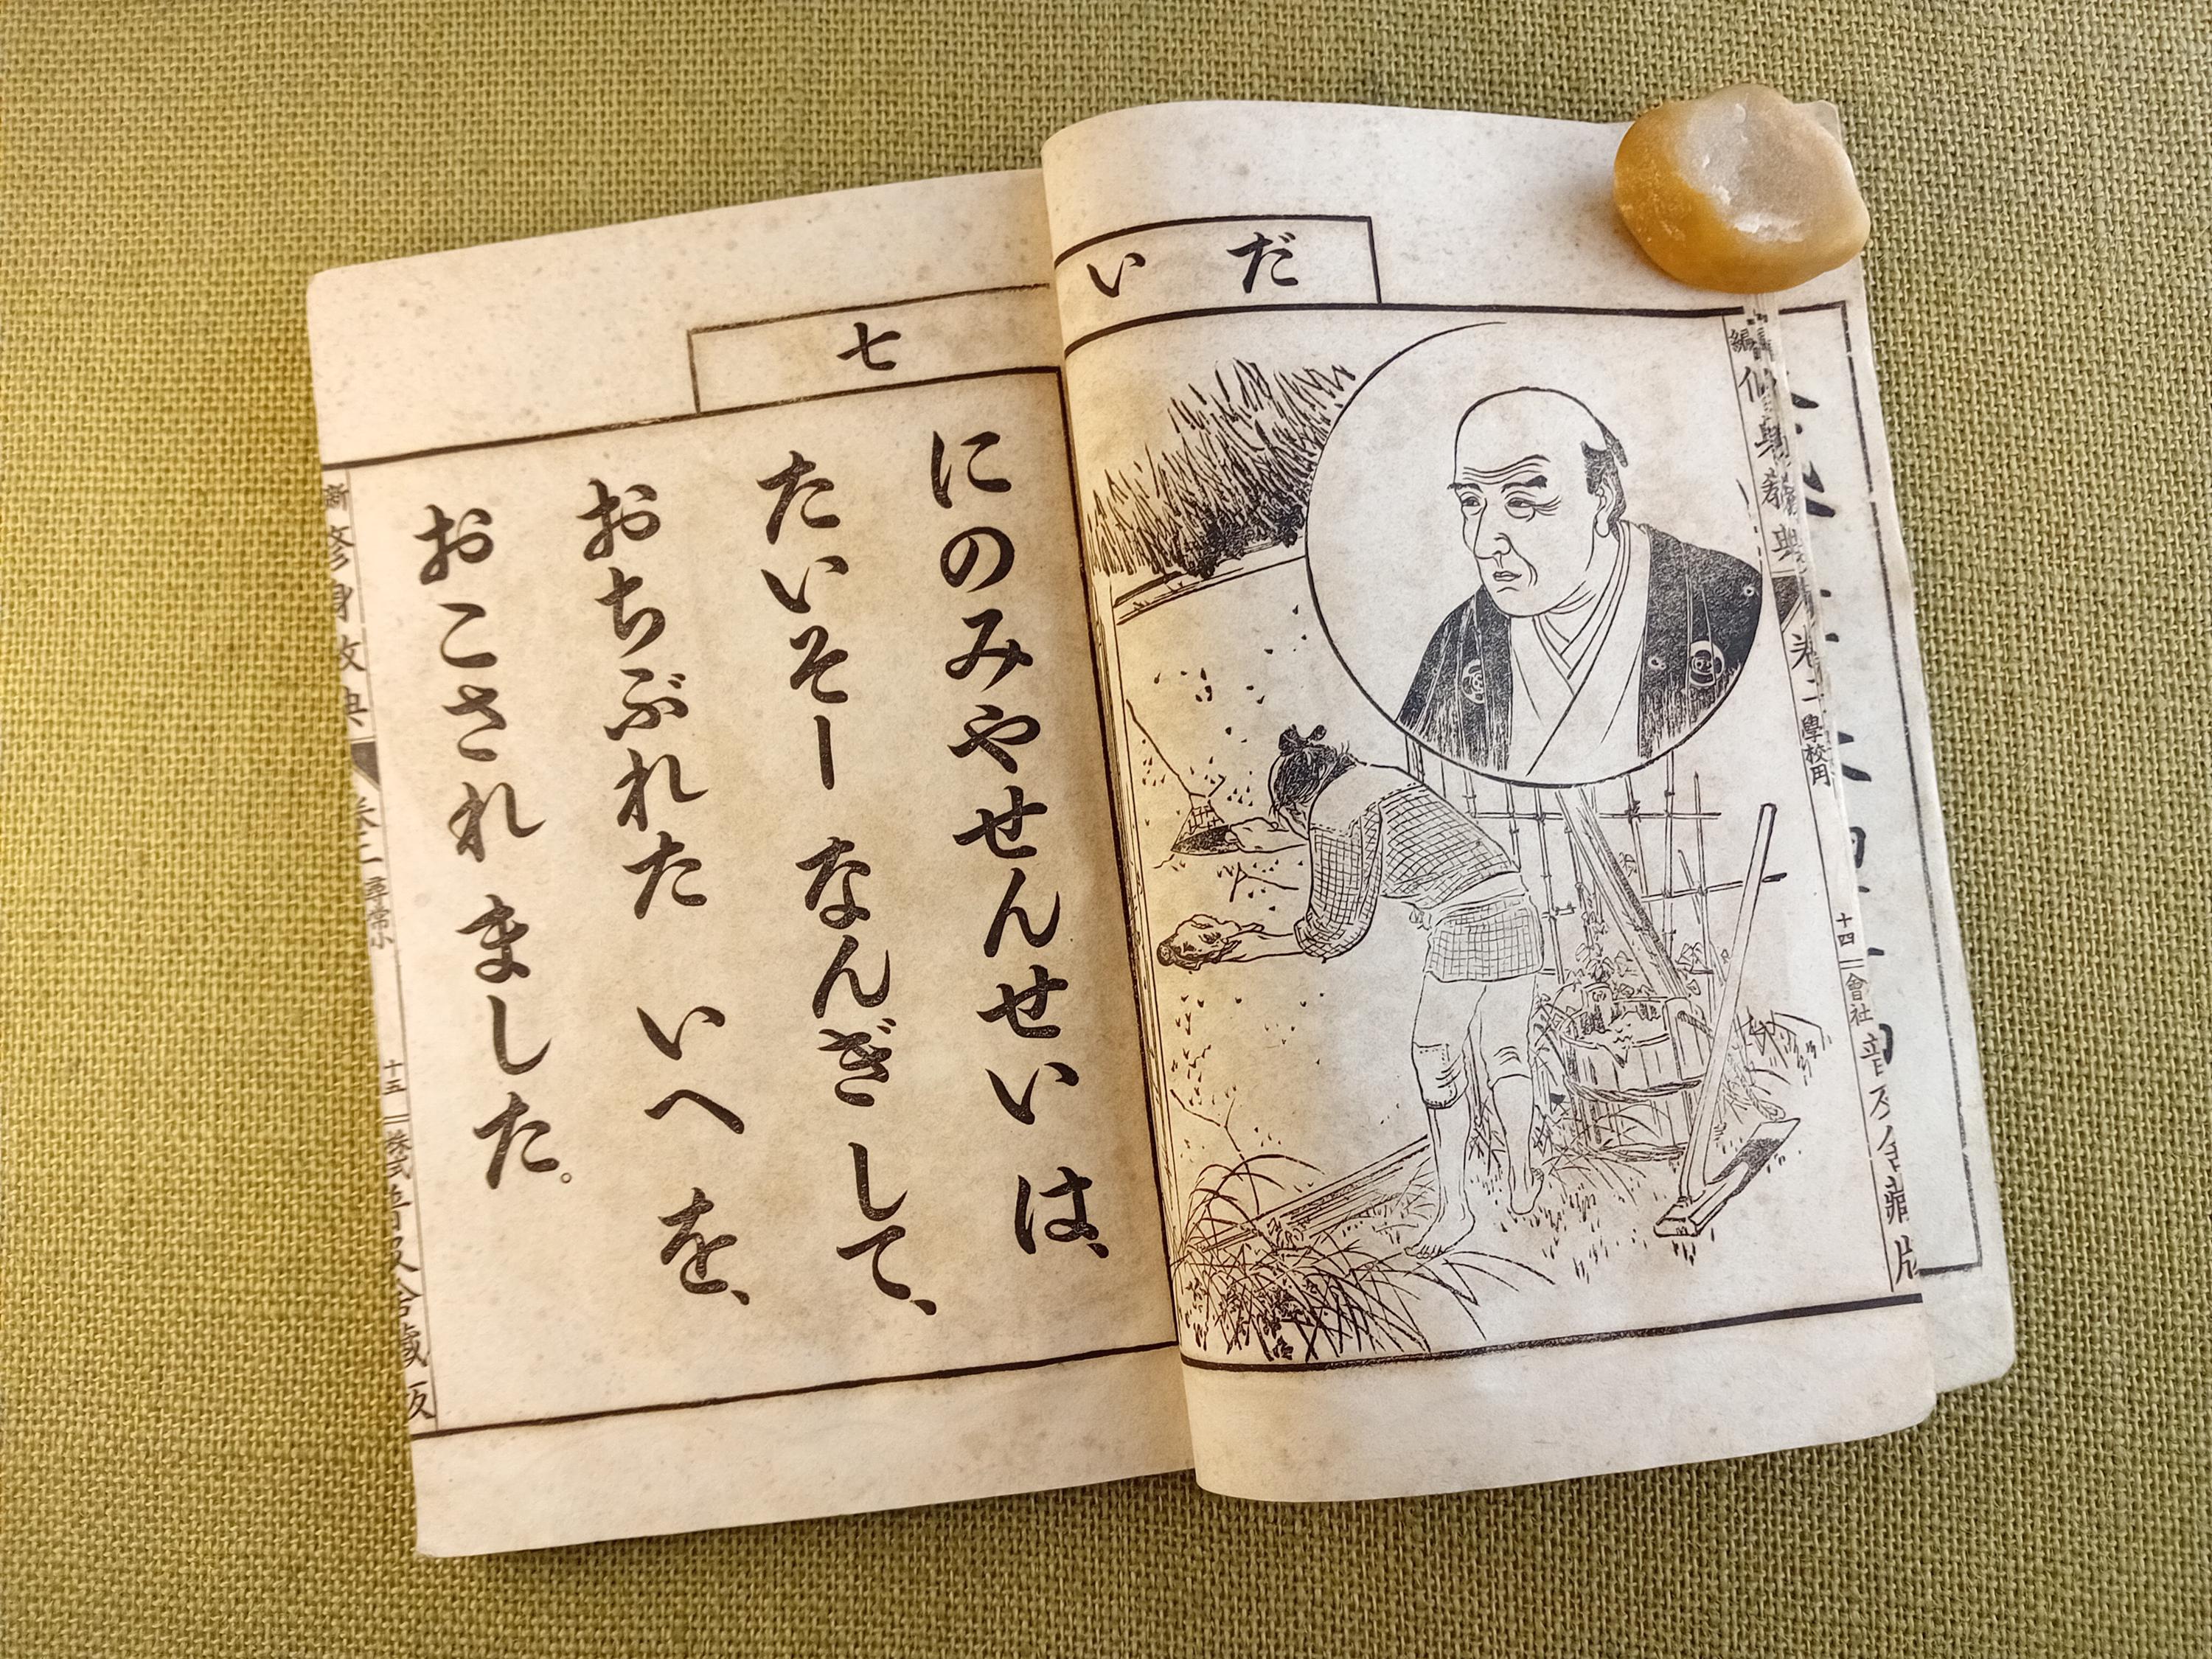 だい
七
にのみやせんせい は、
たいそー なんぎ して、
おちぶれた いへ を、
おこされ ました。
新 修身教典 巻二 尋常小
十五 株式 普及舍蔵版
巻二 學校用
十四 會社 普及舍蔵版